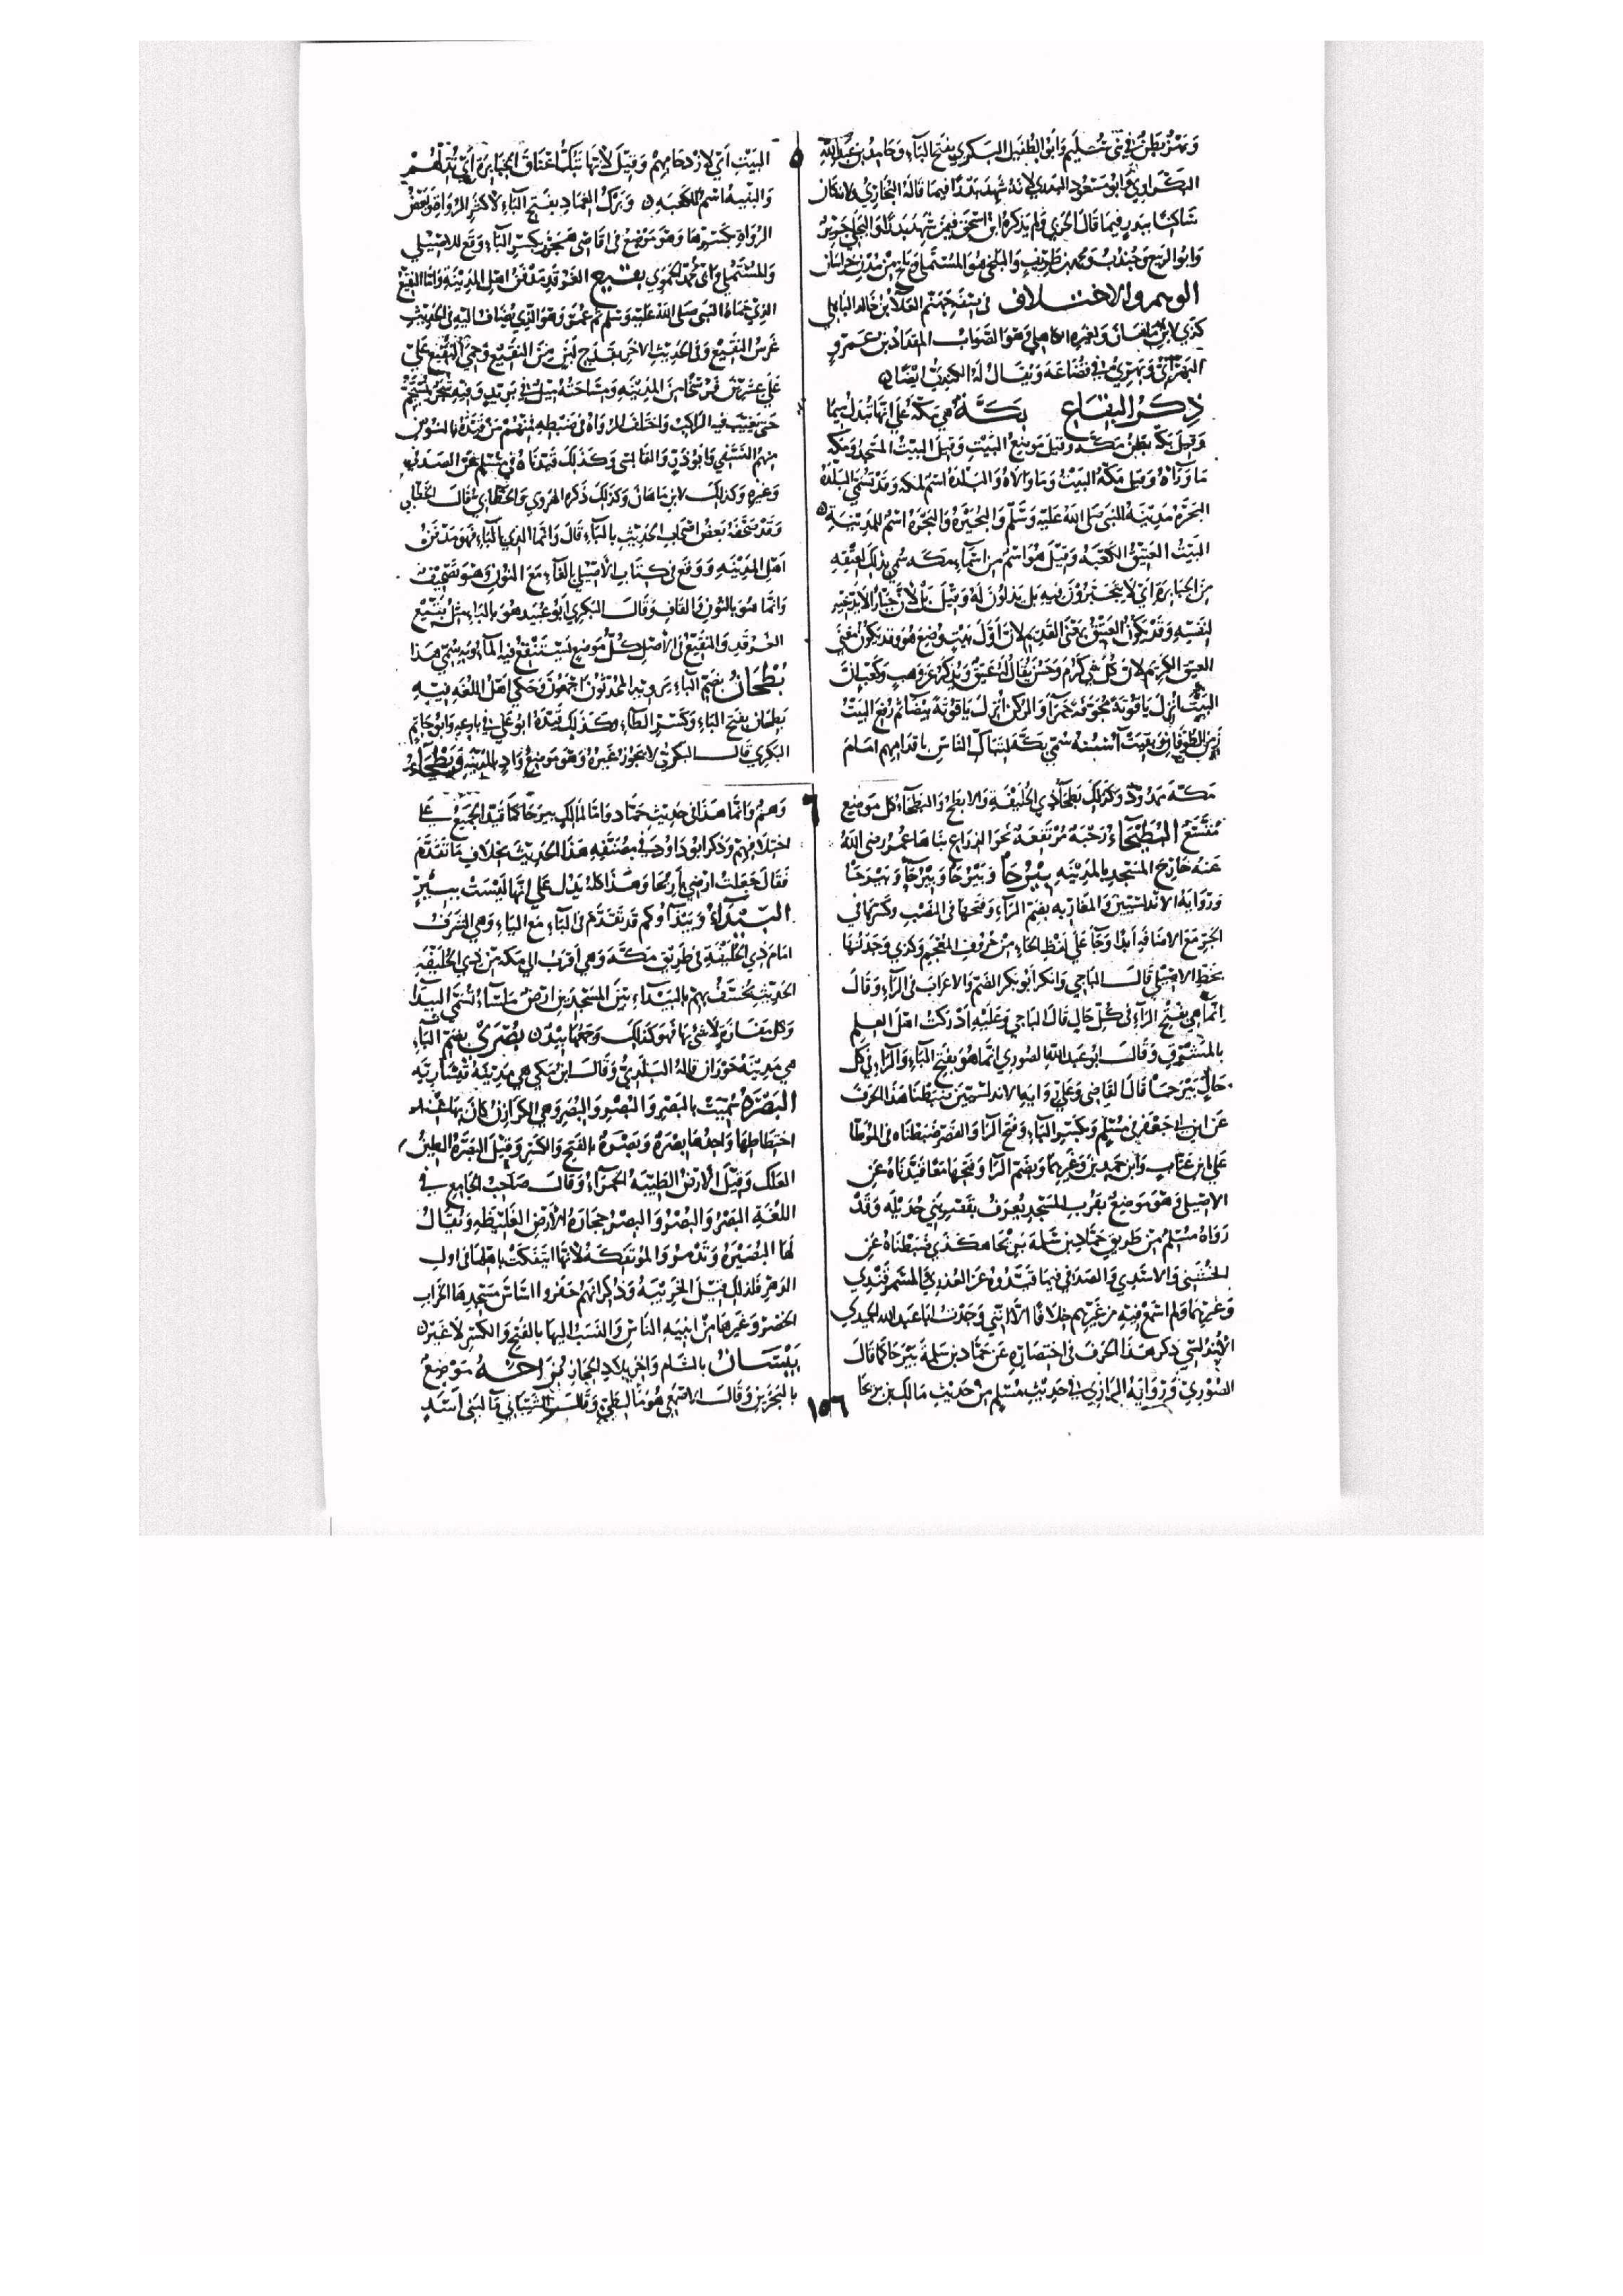 وبهز بطن في بني سليم وأبو الطفيل البكري بفتح الباء وحامد بن عبد الله
البكراوي وأبو مسعود البدري لأنه شهد بدرا فيما قاله البخاري لا بل كان
ساكنا ببدر فيما قال الحربي ولم يذكره ابن اسحق فيمن شهد بدرا والبجلي جرير
وأبو الربيع وجندب ومحمد بن طريف والبلخي هو المستملي وبلخ من مدن خراسان
الوهم والاختلاف في سقف جهنم العلا بن خالد الباهلي
كذي لابن ماهان ولغيره الكاهلي وهو الصواب المقداد بن عمرو
البهراني وبهرى في قضاعة ويقال له الكندي ايضا
ذكر البقاع بكة هي مكة على انها تبدل ميما
وقيل بكة بطن مكة وقيل موضع البيت وقيل البيت المسجد ومكة
ما وراه وقيل مكة البيت وما والاه والبلدة اسم لمكة وقد تسمى البلدة
البحرة مدينة النبي صلى الله عليه وسلم والبحيرة والبحرة اسم للمدينة
البيت العتيق الكعبة وقيل هو اسم من اسماء مكة سمي بذلك لعتقه
من الجبابرة اي لا يتجبرون فيه بل يذلون له وقيل بل لان جبارا لا يدعيه
لنفسه وقد يكون العتيق بمعنى القديم لانه اول بيت وضع وقد يكون معنى
العتيق الكريم لان كل شي كرم وحسن يقال له عتيق ويذكر عن وهب وكعب ان
البيت انزل ياقوتة مجوفة حمرا والركن انزل ياقوتة بيضا ثم رفع البيت
زمن الطوفان وبقيت اسسه سمي بكة لتباك الناس باقدامهم امام
٥
البيت اي لازدحامهم وقيل لانها تبك اعناق الجبابرة اي تذلهم
والبنية اسم للكعبة وبرك الغماد بفتح الباء لاكثر الرواة وبعض
الرواة كسرها وهو موضع في اقاصي هجر بكسر الباء وقع للاصيلي
والمستملي وابي محمد الحموي بقيع الغرقد مدفن اهل المدينة واما النقيع
الذي حماه النبي صلى الله عليه وسلم ثم عمر وهو الذي يضاف اليه في الحديث
غرس النقيع وفي الحديث الاخر بقدح لبن من النقيع وحمى النقيع على
على عشرين فرسخا من المدينة ومساحته ميل في بريد وفيه شجر يستجم
حتى يغيب فيه الراكب واختلف الرواة في ضبطه فمنهم من قيده بالنون
منهم النسفي وابو ذر والقابسي وكذلك قيدناه في مسلم عن الصدفي
وغيره وكذلك لابن ماهان وكذلك ذكره الهروي والخطابي قال الخطابي
وقد صحفه بعض اصحاب الحديث بالباء قال وانما الذي بالباء فهو مدفن
اهل المدينة ووقع في كتاب الاصيلي بالفاء مع النون وهو تصحيف
وانما هو بالنون والقاف وقال البكري ابو عبيد هو بالباء مثل بقيع
الغرقد والنقيع في الاصل كل موضع يستنقع فيه الماء وبه سمي هذا
بطحان بضم الباء يرويه المحدثون اجمعون وحكى اهل اللغة فيه
بطحان بفتح الباء وكسر الطاء وكذلك قيده ابو علي في بارعه وابو حاتم
البكري قال البكري لا يجوز غيره وهو موضع واد بالمدينة وبطحاء
مكة ممدود وكذلك بطحا ذي الحليفة والابطح والبطحاء كل موضع
متسع البطيحاء رحبة مرتفعة نحو الذراع بناها عمر رضي الله
عنه خارج المسجد بالمدينة بيرحا وبيرحا وبيرحا وبيرحا
ورواية الاندلسيين والمغاربة بضم الراء وفتحها في النصب وكسرها في
الجر مع الاضافة ابدا وحا على لفظ الحاء من حروف المعجم وكذي وجدتها
بخط الاصيلي قال الباجي وانكر ابو بكر الضم والاعراب في الراء وقال
انما هي بفتح الراء في كل حال قال الباجي وعليه ادركت اهل العلم
بالمشرق وقال ابو عبد الله الصوري انما هو بفتح الباء والراء في كل
حال بيرحا قال القاضي وعلى رواية الاندلسيين ضبطنا هذا الحرف
عن ابن ابي جعفر في مسلم وبكسر الباء وفتح الرا والقصر ضبطناه في الموطا
على ابن عتاب وابن حمدين وغيرهما وبضم الرا وفتحها معا قيدناه عن
الاصيلي وهو موضع بقرب المسجد يعرف بقصر بني حديلة وقد
رواه مسلم من طريق حماد بن سلمة بريحا هكذي ضبطناه عن
الخشني والاسدي والصدفي فيما قيدوه عن العذري والسمرقندي
وغيرهما ولم اسمع فيه من غيرهم خلافا الا انني وجدت ابا عبد الله الحميدي
الاندلسي ذكر هذا الحرف في اختصاره عن حماد بن سلمة بيرحا كما قال
الصوري ورواية الرازي في حديث مسلم من حديث مالك بن بريحا
٦
وهم وانما هذا في حديث حماد واما لمالك بيرحا كما قيد الجميع على
اختلافهم وذكر ابو داود في مصنفه هذا الحديث بخلاف ما تقدم
فقال جعلت ارضي باريحا وهذا كله يدل على انها ليست ببير
البيداء وبيداوكم قد تقدم في الباء مع الياء وهي الشرف
امام ذي الحليفة في طريق مكة وهي اقرب الى مكة من ذي الحليفة
الحديث يخسف بهم بالبيداء بين المسجدين ارض ملساء تسمى البيدا
وكل مفازة لا شي بها فهو كذلك وجمعها بيد بصرى بضم الباء
هي مدينة حوران قاله البلدي وقال ابن مكي هي مدينة قيسارية
البصرة سميت بالبصر والبصر والبصر وهي الكذان كان بها عند
اختطاطها واحدها بصرة وبصرة بالفتح والكسر وقيل البصرة الطين
العلك وقيل الارض الطيبة الحمراء وقال صاحب الجامع في
اللغة البصر والبصر والبصر حجارة الارض الغليظة ويقال
لها البصيرة وتدمر والموتفكة لانها ايتفكت باهلها في اول
الدهر فلذلك قيل الخريبة وذكر انهم حفروا اساس مسجدها الخراب
الخضر وغيرها من ابنية الناس والنسب اليها بالفتح والكسر لا غير
بيسان بالشام واخرى ببلاد الحجاز بزاخة موضع
بالبحرين وقال الاصمعي هو ما لطي وقال الشيباني ما لبني اسد
١٥٦